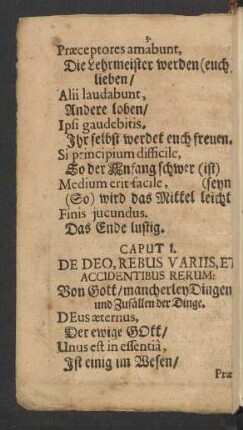 3.
Præceptores amabunt,
Die Lehrmeister werden (euch
lieben /
Alii laudabunt,
Andere loben /
Ipsi gaudebitis.
Ihr selbst werdet euch freuen.
Si principium difficile,
So der Anfang schwer (ist)
Medium erit facile, (seyn
(So) wird das Mittel leicht
Finis jucundus.
Das Ende lustig.
CAPUT I.
DE DEO, REBUS VARIIS, ET
ACCIDENTIBUS RERUM:
Von Gott / mancherley Dingen
und Zufällen der Dinge.
DEus æternus,
Der ewige GOtt /
Unus est in essentiâ,
Ist einig im Wesen /
Præ